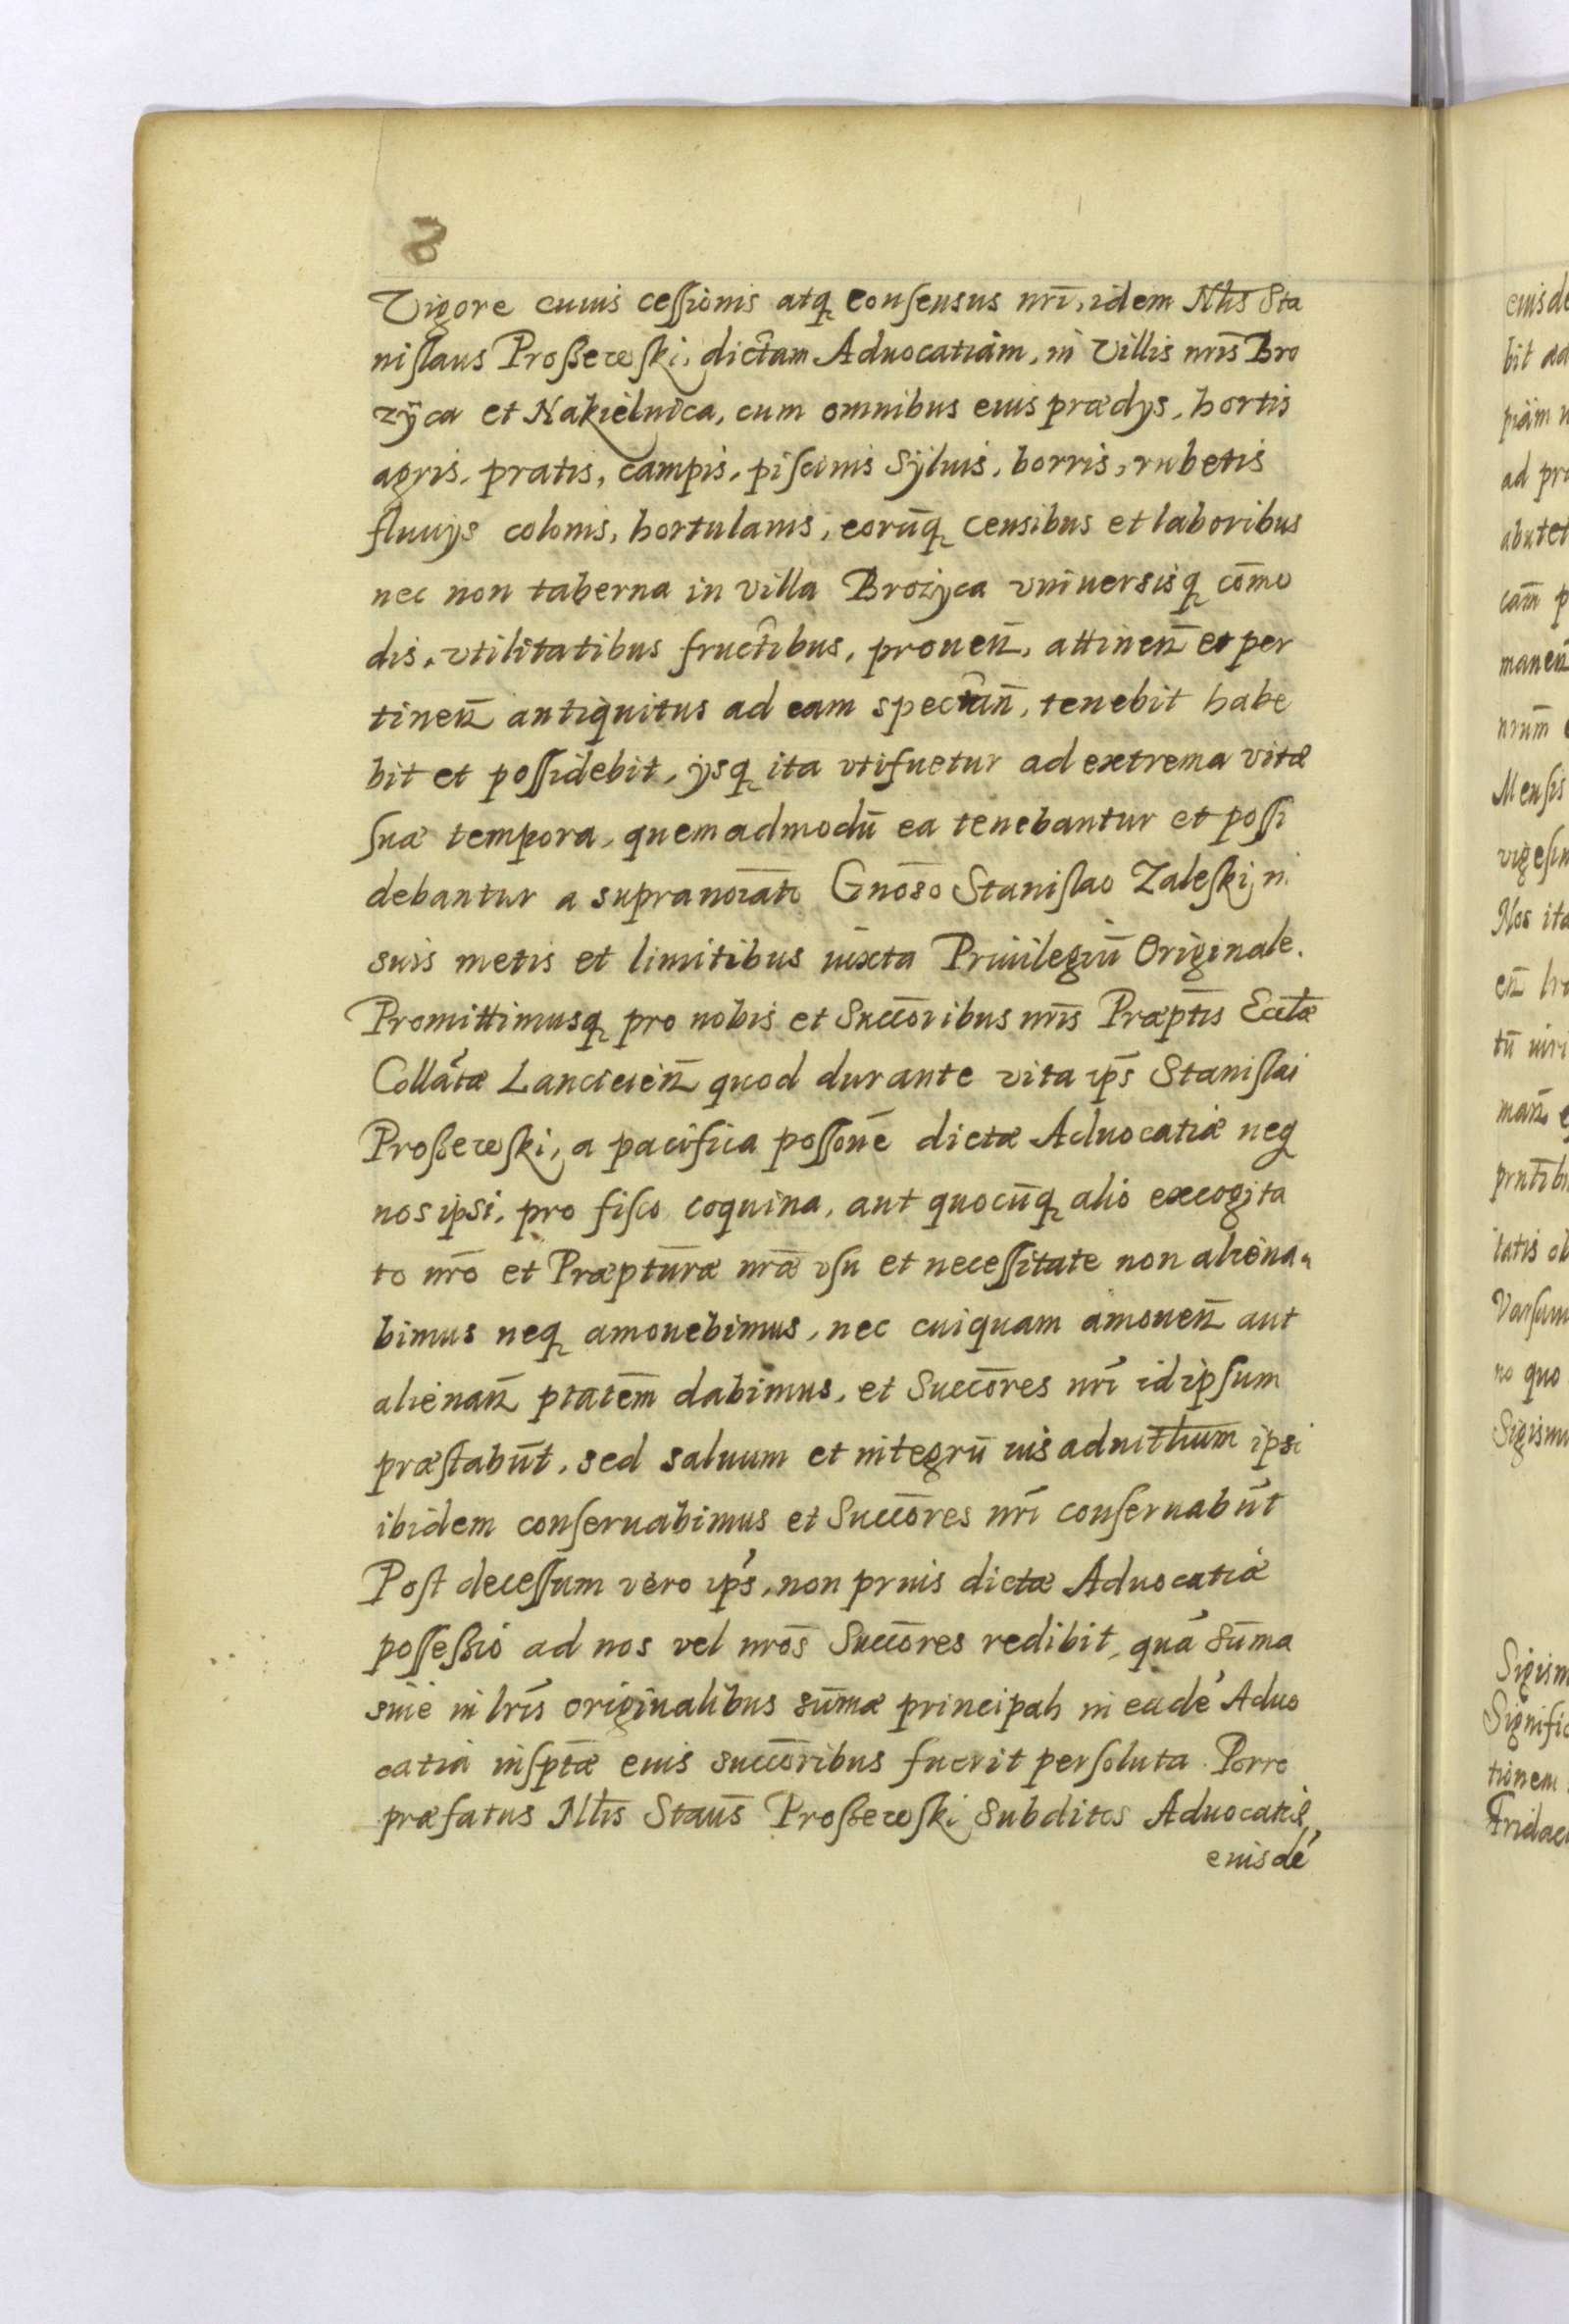 8
Vigore cuius ceſſionis atq conſensus nr̄i, idem Nlis Sta
niſlaus Proßewſki, dictam Aduocatiam, in Villis nr̄is Bro
zÿca et Nakielnica, cum omnibus eius prædys, hortis
agris, pratis, campis, piſcinis Sÿluis, borris, rubetis
fluuÿs colonis, hortulanis, eorūq censibus et laboribus
nec non taberna in villa Brożyca vniuersisq cōmo
dis, vtilitatibus fructibus, prouen̄, attinen̄ et per
tinen̄ antiquitus ad eam spectan̄, tenebit habe
bit et poſſidebit, ÿsq ita vtifuetur ad extrema vitæ
ſuæ tempora, quemadmodū ea tenebantur et poſſi
debantur a supranoīato Gnōso Staniſlao Zaleſki, in
suis metis et limitibus iuxta Priuilegiū Originale.
Promittimusq pro nobis et Succōribus nr̄is Præptīs Eccl̄æ
Collātæ Lanciciēn̄ quod durante vita ip̄s Staniſlai
Proßewſki, a pacifica poſſōne dictæ Aduocatiæ neq
nos ipsi, pro fiſco coquina, aut quocūq alio excogita
to nr̄o et Præptūræ nr̄æ vſu et neceſſitate non aliena⸗
bimus neq amouebimus, nec cuiquam amouen̄ aut
alienan̄ ptātēm dabimus, et Succōres nr̄i idipſum
præſtabūt, sed saluum et integrū ius aduitl̄ium ipsi
ibidem conſeruabimus et Succōres nr̄i conſeruabūt
Poſt deceſſum vero ip̄s, non prius dictæ Aduocatiæ
poſſeßio ad nos vel nr̄os Succōres redibit, quā sūma
siue in lr̄is originalibus sūmæ principali in eadē Aduo
catia inſptǣ eius succōribus fuerit perſoluta. Porro
præfatus Nlis Stāus Proßewſki Subditos Aduocatiæ
eiusdē